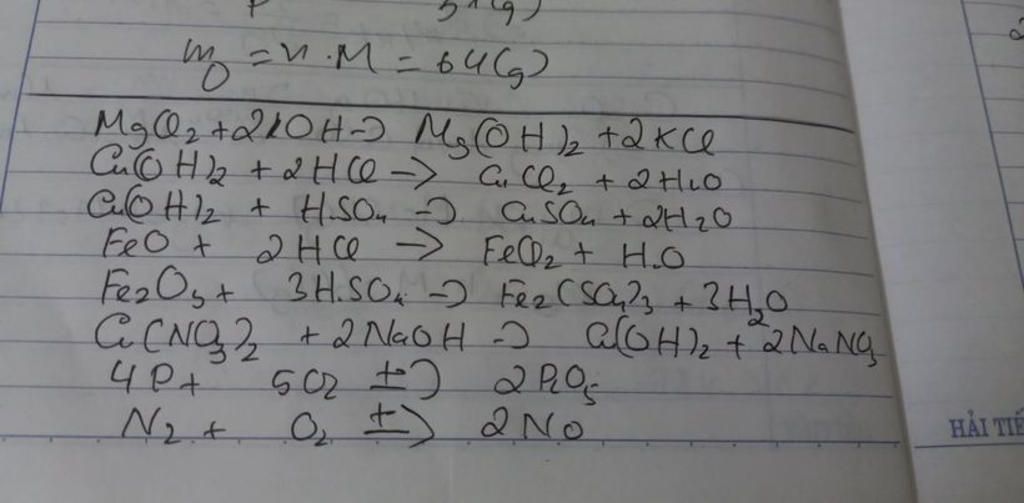 P 31(g)
mO = n.M = 64(g)
MgCl2 + 2KOH → Mg(OH)2 + 2KCl
Cu(OH)2 + 2HCl → CuCl2 + 2H2O
Cu(OH)2 + H2SO4 → CuSO4 + 2H2O
FeO + 2HCl → FeCl2 + H2O
Fe2O3 + 3H2SO4 → Fe2(SO4)3 + 3H2O
Cu(NO3)2 + 2NaOH → Cu(OH)2 + 2NaNO3
4P + 5O2 t→ 2P2O5
N2 + O2 t→ 2NO
HẢI TIẾ